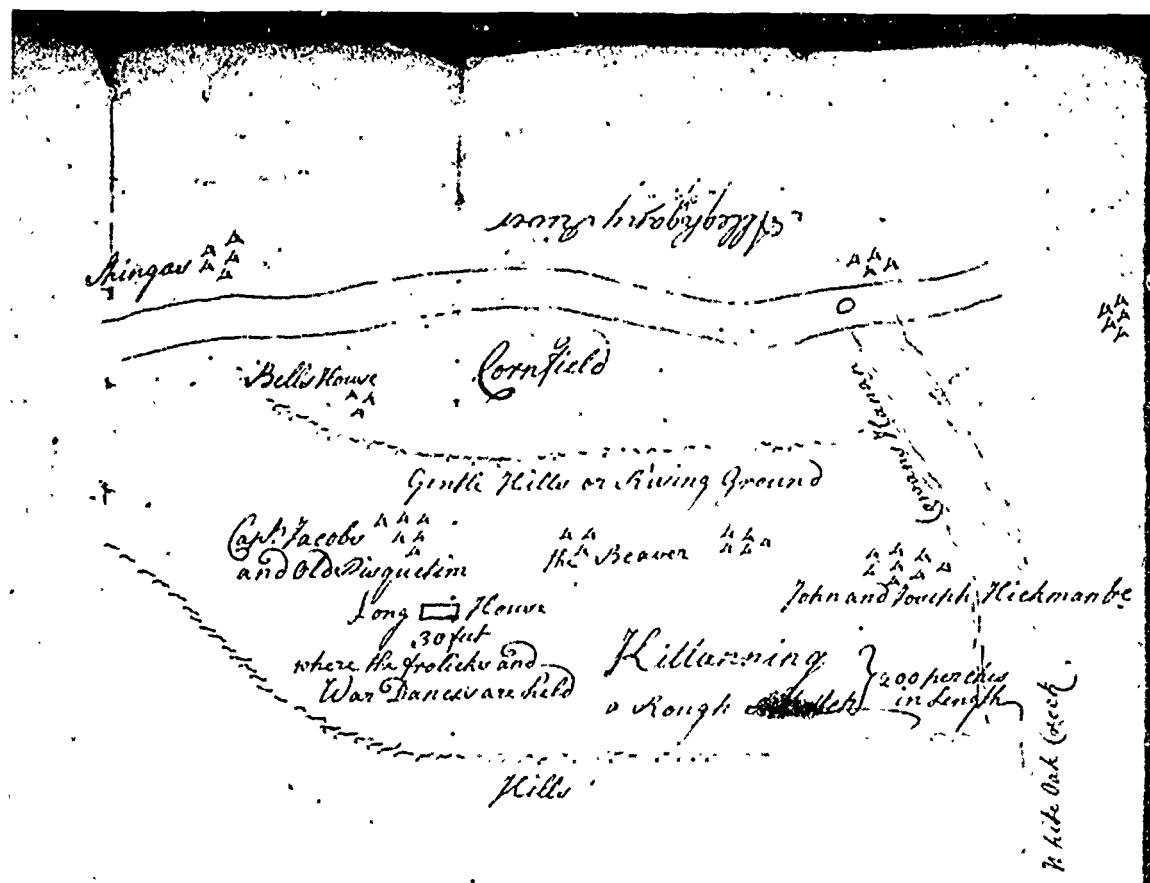 Alleghgany River
Shingas
Bells House
Cornfield
Gentle Hills or Rising Ground
Capt. Jacobs
and Old Pisquetim
the Beaver
John and Joseph Hickman &c
Long House
30 feet
where the frolicks and
War Dances are held
Kittanning
a Rough
200 perches
in Length
Hills
White Oak Creek